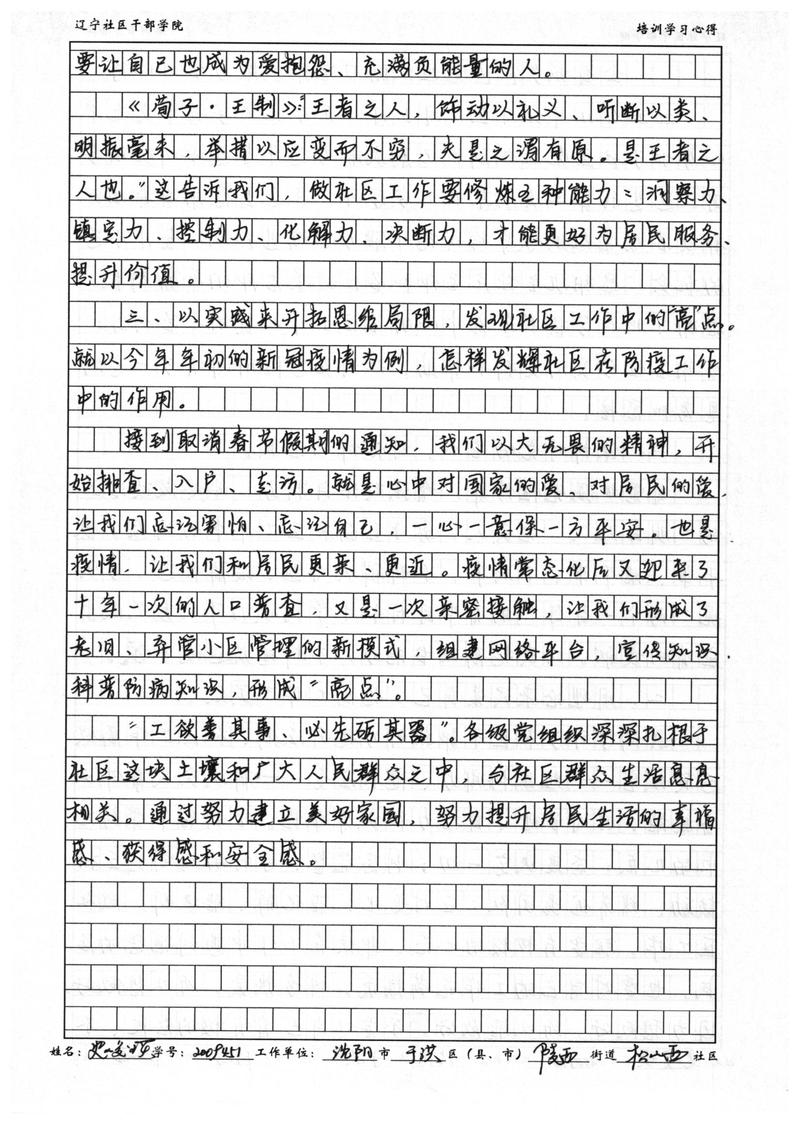 辽宁社区干部学院 培训学习心得
要让自己也成为爱抱怨、充满负能量的人。
《荀子·王制》:"王者之人，饰动以礼义、听断以类、
明振毫末，举措以应变而不穷，夫是之谓有原。是王者之
人也。"这告诉我们，做社区工作要修炼五种能力：洞察力、
镇定力、控制力、化解力、决断力，才能更好为居民服务、
提升价值。
三、以实践来开拓思维局限，发现社区工作中的"亮"点。
就以今年年初的新冠疫情为例，怎样发挥社区在防疫工作
中的作用。
接到取消春节假期的通知，我们以大无畏的精神，开
始排查、入户、走访。就是心中对国家的爱，对居民的爱，
让我们忘记害怕、忘记自己，一心一意保一方平安。也是
疫情，让我们和居民更亲、更近。疫情常态化后又迎来了
十年一次的人口普查，又是一次亲密接触，让我们形成了
老旧、弃管小区管理的新模式，组建网络平台，宣传知识，
科普防病知识，形成"亮点"。
"工欲善其事、必先砺其器"。各级党组织深深扎根于
社区这块土壤和广大人民群众之中，与社区群众生活息息
相关。通过努力建立美好家园，努力提升居民生活的幸福
感、获得感和安全感。
姓名： 学号：2009451 工作单位：沈阳市 于洪 区（县、市） 陵西 街道 松山西 社区